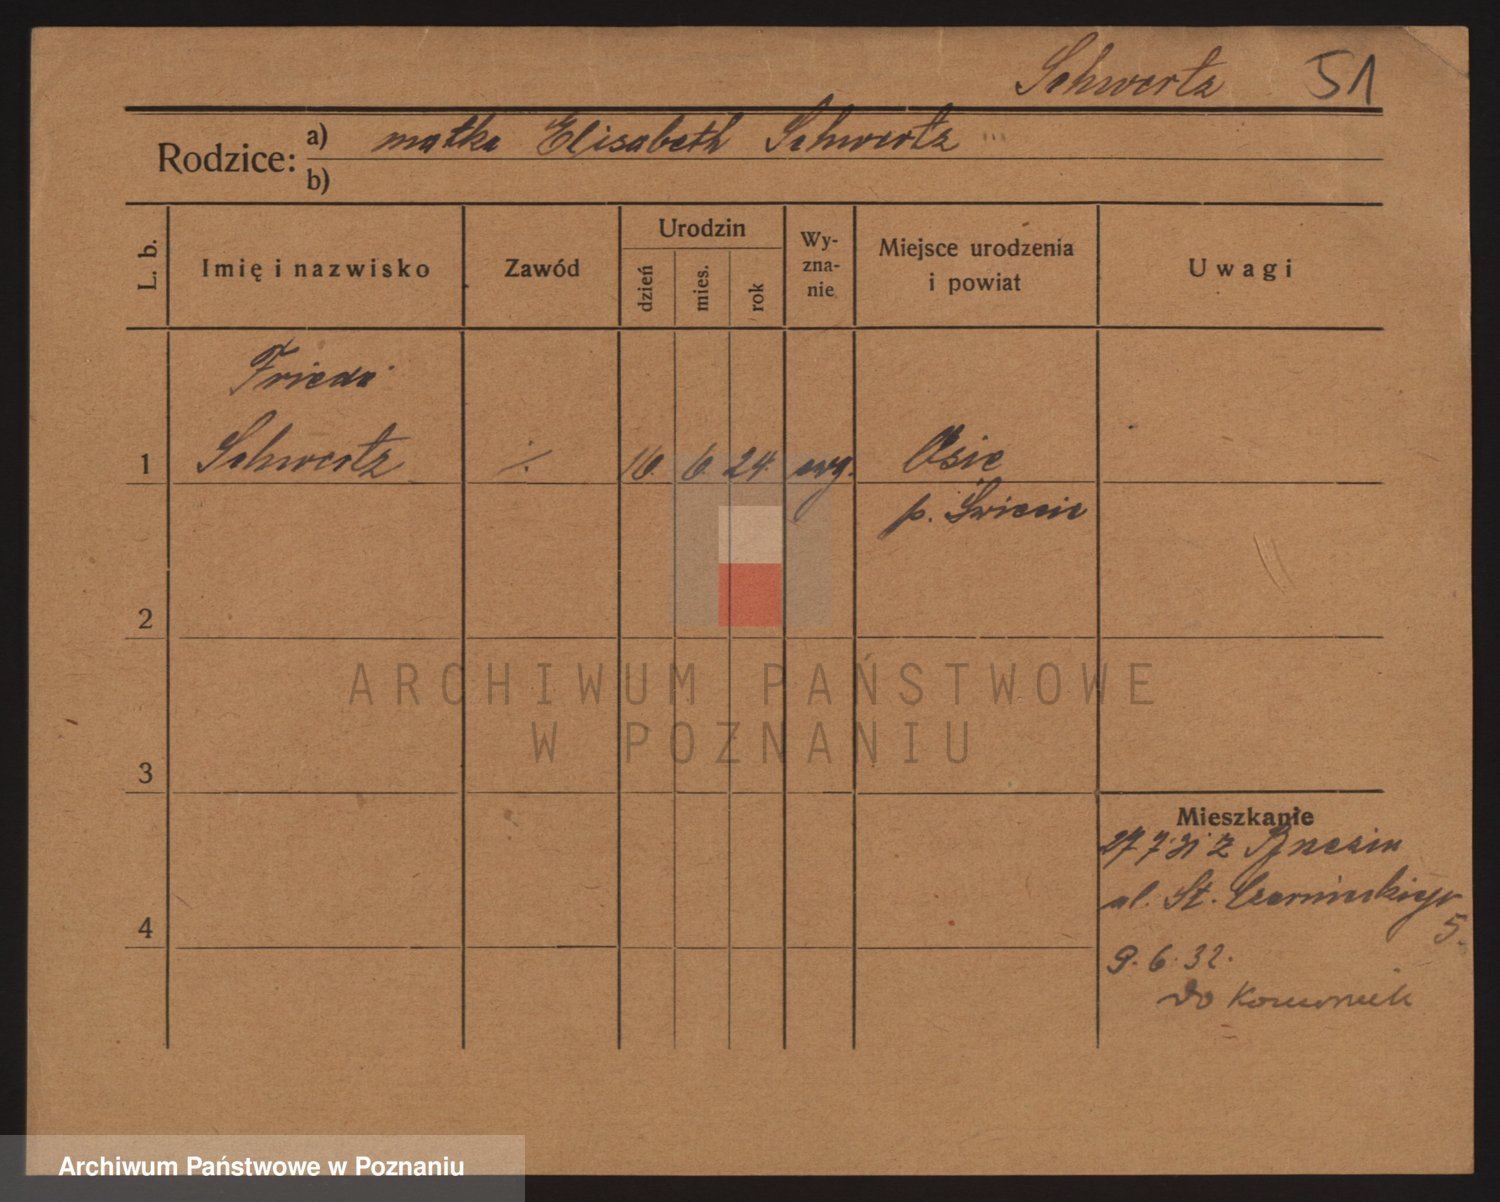 Schwertz 51
Rodzice: a) matka Elisabeth Schwertz
b)
L. b. Imię i nazwisko Zawód Urodzin dzień mies. rok Wy-zna-nie Miejsce urodzenia i powiat Uwagi
Frieda
1 Schwertz ·/. 16. 6. 24. ewg. Osie
p. Świecie
2
ARCHIWUM PAŃSTWOWE
W POZNANIU
3
Mieszkanie
27 7 31 z
ul. St. Czarnieckiego
4 5.
9. 6. 32.
do
Archiwum Państwowe w Poznaniu